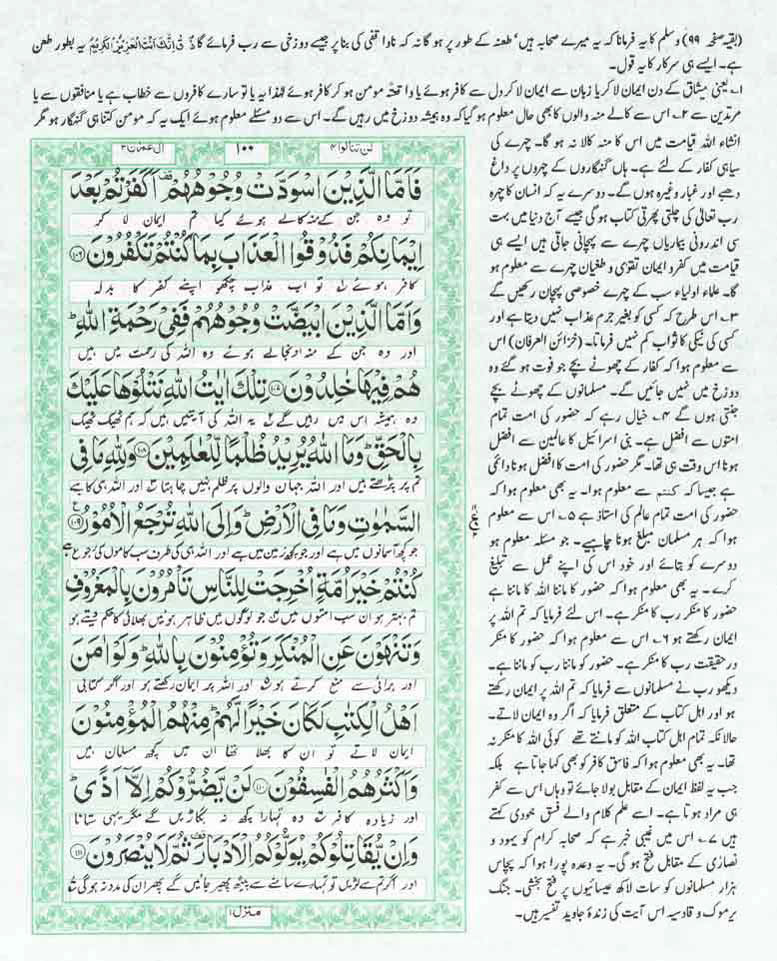 (بقیہ صفحہ ۹۹) وسلم کا یہ فرمانا کہ یہ میرے صحابہ ہیں‘ طعنہ کے طور پر ہو گا نہ کہ ناواقفی کی بنا پر جیسے دوزخی سے رب فرمائے گا ذُقْ اِنَّكَ اَنْتَ الْعَزِيْزُ الْكَرِيْمُ یہ بطور طعن
ہے۔ ایسے ہی سرکار کا یہ قول۔
۱۔ یعنی میثاق کے دن ایمان لا کر یا زبان سے ایمان لا کر دل سے کافر ہوئے یا واقعۃ مومن ہو کر کافر ہوئے لہٰذا یہ یا تو سارے کافروں سے خطاب ہے یا منافقوں سے یا
مرتدین سے ۲۔ اس سے کالے منہ والوں کا بھی حال معلوم ہو گیا کہ وہ ہمیشہ دوزخ میں رہیں گے۔ اس سے دو مسئلے معلوم ہوئے ایک یہ کہ مومن کتنا ہی گنہگار ہو مگر
انشاء اللہ قیامت میں اس کا منہ کالا نہ ہو گا۔ چہرے کی
سیاہی کفار کے لئے ہے۔ ہاں گنہگاروں کے چہروں پر داغ
دھبے اور غبار وغیرہ ہوں گے۔ دوسرے یہ کہ انسان کا چہرہ
رب تعالٰی کی چلتی پھرتی کتاب ہو گی جیسے آج دنیا میں بہت
سی اندرونی بیماریاں چہرے سے پہچانی جاتی ہیں ایسے ہی
قیامت میں کفر و ایمان تقوٰی و طغیان چہرے سے معلوم ہو
گا۔ علماء اولیاء سب کے چہرے خصوصی پہچان رکھیں گے
۳۔ اس طرح کہ کسی کو بغیر جرم عذاب نہیں دیتا ہے اور
کسی کی نیکی کا ثواب کم نہیں فرماتا۔ (خزائن العرفان) اس
سے معلوم ہوا کہ کفار کے چھوٹے بچے جو فوت ہو گئے وہ
دوزخ میں نہیں جائیں گے۔ مسلمانوں کے چھوٹے بچے
جنتی ہوں گے ۴۔ خیال رہے کہ حضور کی امت تمام
امتوں سے افضل ہے۔ بنی اسرائیل کا عالمین سے افضل
ہونا اس وقت ہی تھا۔ مگر حضور کی امت کا افضل ہونا دائمی
ہے جیسا کہ کنتم سے معلوم ہوا۔ یہ بھی معلوم ہوا کہ
حضور کی امت تمام عالم کی استاذ ہے ۵۔ اس سے معلوم
ہوا کہ ہر مسلمان مبلغ ہونا چاہیے۔ جو مسئلہ معلوم ہو
دوسرے کو بتائے اور خود اس کی اپنے عمل سے تبلیغ
کرے۔ یہ بھی معلوم ہوا کہ حضور کا ماننا اللہ کا ماننا ہے
حضور کا منکر رب کا منکر ہے۔ اس لئے فرمایا کہ تم اللہ پر
ایمان رکھتے ہو ۶۔ اس سے معلوم ہوا کہ حضور کا منکر
درحقیقت رب کا منکر ہے۔ حضور کو ماننا رب کو ماننا ہے۔
دیکھو رب نے مسلمانوں سے فرمایا کہ تم اللہ پر ایمان رکھتے
ہو اور اہل کتاب کے متعلق فرمایا کہ اگر وہ ایمان لاتے۔
حالانکہ تمام اہل کتاب اللہ کو مانتے تھے کوئی اللہ کا منکر نہ
تھا۔ یہ بھی معلوم ہوا کہ فاسق کافر کو بھی کہا جاتا ہے بلکہ
جب یہ لفظ ایمان کے مقابل بولا جائے تو وہاں اس سے کفر
ہی مراد ہوتا ہے۔ اسے علم کلام والے فسق جحودی کہتے
ہیں ۷۔ اس میں غیبی خبر ہے کہ صحابہ کرام کو یہود و
نصارٰی کے مقابل فتح ہو گی۔ یہ وعدہ پورا ہوا کہ پچاس
ہزار مسلمانوں کو سات لاکھ عیسائیوں پر فتح بخشی۔ جنگ
یرموک و قادسیہ اس آیت کی زندۂ جاوید تفسیر ہیں۔
لن تنالوا ۴ ۱۰۰ اٰل عمران ۳
فَاَمَّا الَّذِيْنَ اسْوَدَّتْ وُجُوْهُهُمْ اَكَفَرْتُمْ بَعْدَ
تو وہ جن کے منہ کالے ہوئے کیا تم ایمان لا کر
اِيْمَانِكُمْ فَذُوْقُوا الْعَذَابَ بِمَا كُنْتُمْ تَكْفُرُوْنَ ۱۰۶
کافر ہوئے تو اب عذاب چکھو اپنے کفر کا بدلہ
وَاَمَّا الَّذِيْنَ ابْيَضَّتْ وُجُوْهُهُمْ فَفِيْ رَحْمَةِ اللّٰهِ
اور وہ جن کے منہ اونجالے ہوئے وہ اللہ کی رحمت میں ہیں
هُمْ فِيْهَا خٰلِدُوْنَ ۱۰۷ تِلْكَ اٰيٰتُ اللّٰهِ نَتْلُوْهَا عَلَيْكَ
وہ ہمیشہ اس میں رہیں گے یہ اللہ کی آیتیں ہیں کہ ہم ٹھیک ٹھیک
بِالْحَقِّ وَمَا اللّٰهُ يُرِيْدُ ظُلْمًا لِّلْعٰلَمِيْنَ ۱۰۸ وَلِلّٰهِ مَا فِي
تم پر پڑھتے ہیں اور اللہ جہان والوں پر ظلم نہیں چاہتا اور اللہ ہی کا ہے
السَّمٰوٰتِ وَمَا فِي الْاَرْضِ وَاِلَى اللّٰهِ تُرْجَعُ الْاُمُوْرُ ۱۰۹
جو کچھ آسمانوں میں ہے اور جو کچھ زمین میں ہے اور اللہ ہی کی طرف سب کاموں کی رجوع ہے
كُنْتُمْ خَيْرَ اُمَّةٍ اُخْرِجَتْ لِلنَّاسِ تَاْمُرُوْنَ بِالْمَعْرُوْفِ
تم بہتر ہو ان سب امتوں میں جو لوگوں میں ظاہر ہوئیں بھلائی کا حکم دیتے ہو
وَتَنْهَوْنَ عَنِ الْمُنْكَرِ وَتُؤْمِنُوْنَ بِاللّٰهِ وَلَوْ اٰمَنَ
اور برائی سے منع کرتے ہو اور اللہ پر ایمان رکھتے ہو اور اگر کتابی
اَهْلُ الْكِتٰبِ لَكَانَ خَيْرًا لَّهُمْ مِنْهُمُ الْمُؤْمِنُوْنَ
ایمان لاتے تو ان کا بھلا تھا ان میں کچھ مسلمان ہیں
وَاَكْثَرُهُمُ الْفٰسِقُوْنَ ۱۱۰ لَنْ يَّضُرُّوْكُمْ اِلَّا اَذًى
اور زیادہ کافر وہ تمہارا کچھ نہ بگاڑیں گے مگر یہی ستانا
وَاِنْ يُّقَاتِلُوْكُمْ يُوَلُّوْكُمُ الْاَدْبَارَ ثُمَّ لَا يُنْصَرُوْنَ ۱۱۱
اور اگر تم سے لڑیں تو تمہارے سامنے سے پیٹھ پھیر جائیں گے پھر ان کی مدد نہ ہو گی
منزل ۱